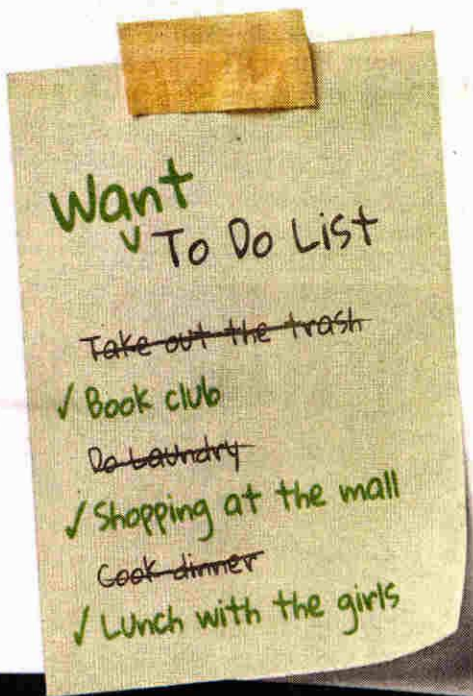 Want
To Do List
Take out the trash
✓ Book club
Do Laundry
✓ Shopping at the mall
Cook dinner
✓ Lunch with the girls